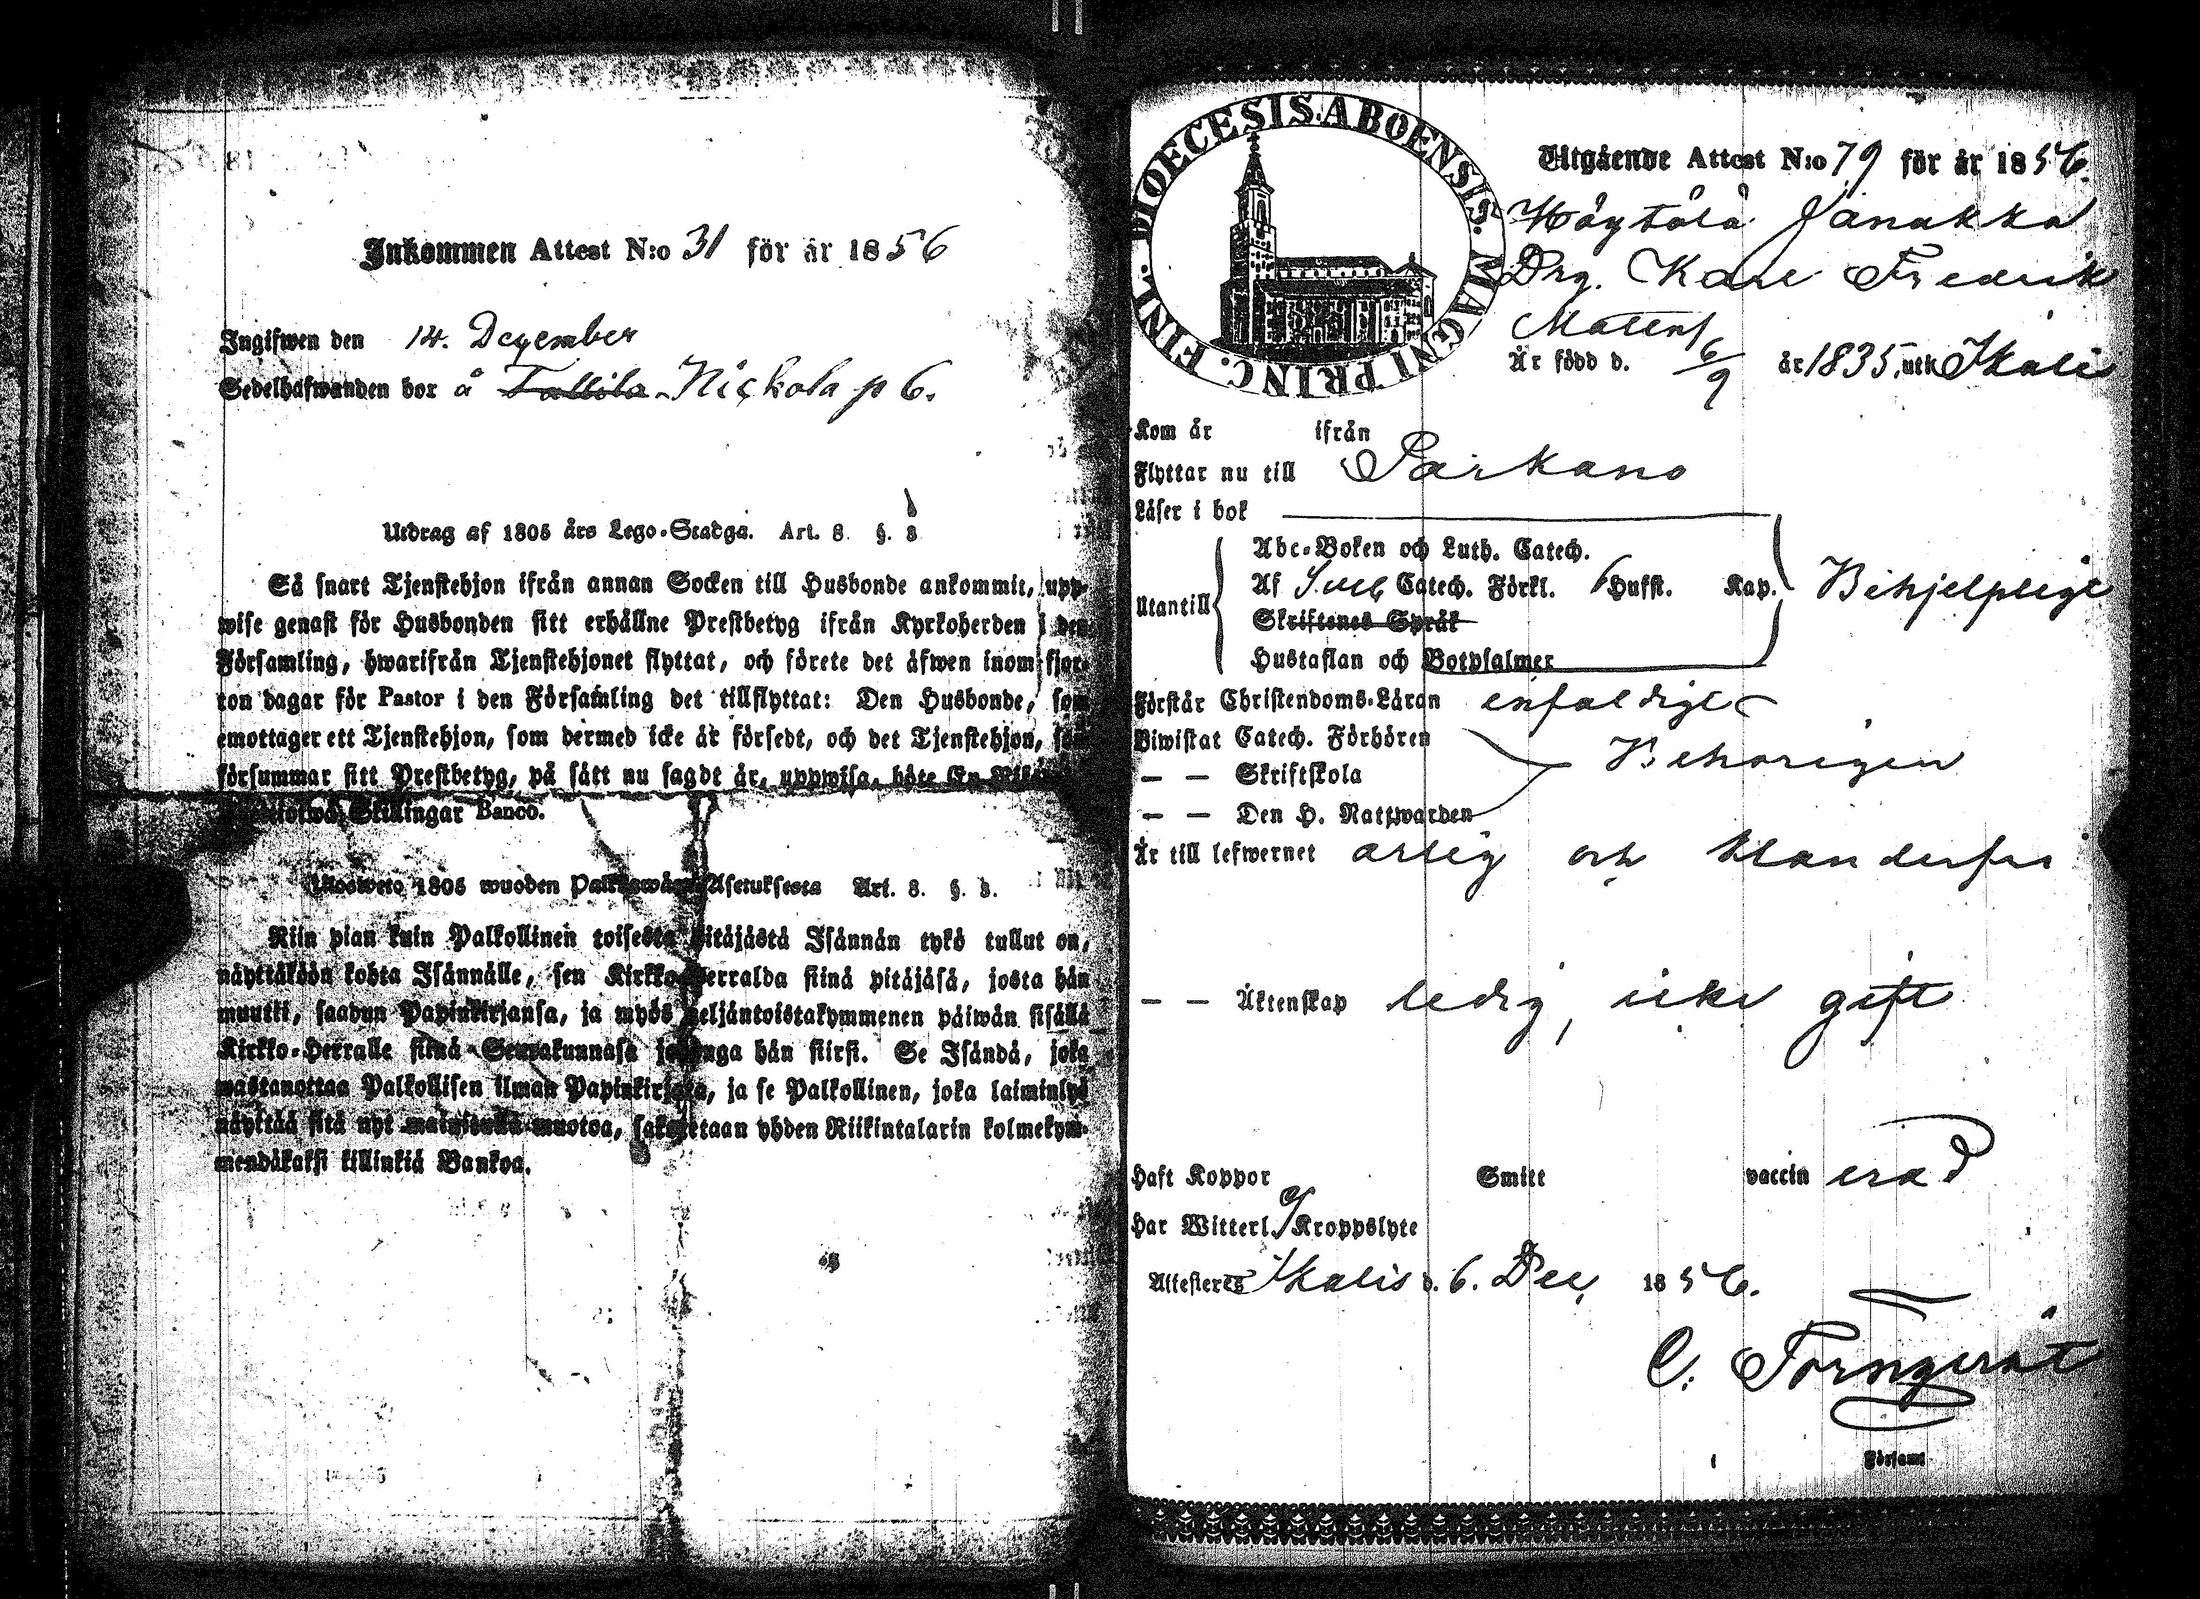 Inkommen Attest N:o 31 för år 1856
Ingifwen den 14. Dezember
Sedelhafwanden bor å Nickola p 6.
Utdrag af 1805 års Lego-Stadga. Art. 8. §. 8
Så snart Tjenstehjon ifrån annan Socken till Husbonde ankommit, upp-
wise genast för Husbonden sitt erhållne Prestbetyg ifrån Kyrkoherden i den
Församling, hwarifrån Tjenstehjonet flyttat, och förete det äfwen inom fjor-
ton dagar för Pastor i den Församling det tillflyttat: Den Husbonde, som
emottager ett Tjenstehjon, som dermed icke är försedt, och det Tjenstehjon, som
försummar sitt Prestbetyg, på sätt nu sagdt är, uppwisa, böte En
Skillingar Banco.
1805 wuoden Asetuksesta Art. 8. §. 8.
Niin pian kuin Palkollinen toisesta pitäjästä Isännän tykö tullut on,
näyttäköön kohta Isännälle, sen Kirkko-Herralda siinä pitäjäsä, josta hän
muutti, saadun Papinkirjansa, ja myös neljäntoistakymmenen päiwän sisällä
Kirkko-Herralle siinä Seurakunnasa johonga hän siirsi. Se Isändä, joka
wastanottaa Palkollisen ilman Papinkirjata, ja se Palkollinen, joka laiminlyö
näyttää sitä nyt mainitulla muotoa, sakotetaan yhden Riikintalarin kolmekym-
mendäkaksi killinkiä Bankoa.
DIOECESIS ABOENSIS. MAGNI PRINC. FINL.
Utgående Attest N:o 79 för år 1856.
Höytölä Jänakka
Drg. Karl Fredrik
Mattens
Är född d. 6/9 år 1835, uti Ikalis
Kom år ifrån
Flyttar nu till Parkano
Läser i bok
Abc-Boken och Luth. Catech.
Utantill Af Catech. Förkl. Hufst. Kap. Behjelpligt
Skriftenes Språk
Hustaflan och Botpsalmer
Förstår Christendoms-Läran enfaldigt
Biwistat Catech. Förhören
— — Skriftskola Behörigen
— — Den H. Nattwarden
Är till lefwernet ärlig och klanderfri
— — Äktenskap ledig, icke gift
Haft Koppor Smitt vaccin erad
Har Witterl. ej Kroppslyte
Attesteras Ikalis d. 6. Dec. 1856.
C. Forngerät
Församl